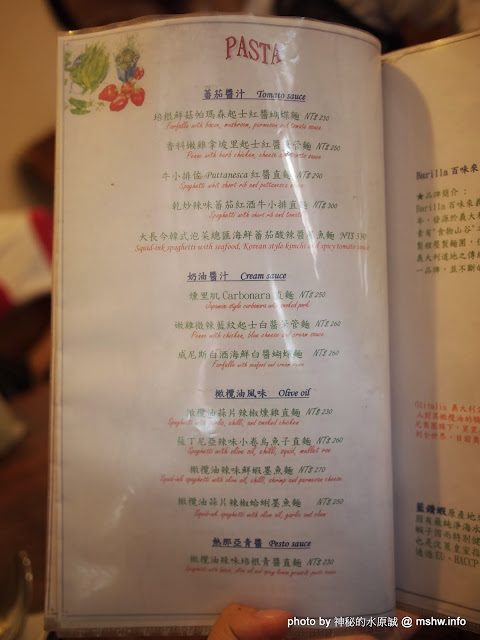 PASTA
蕃茄醬汁 Tomato sauce
培根鮮菇帕瑪森起士紅醬蝴蝶麵 NT$ 250
Farfalle with bacon, mushroom, parmesan and tomato sauce
香料嫩雞拿坡里起士紅醬筆管麵 NT$ 250
Penne with herb chicken, cheese
牛小排佐Puttanesca 紅醬直麵 NT$ 290
Spaghetti whit short rib and puttanesca sauce
乾炒辣味蕃茄紅酒牛小排直麵 NT$ 300
Spaghetti with short rib and tomato
大長今韓式泡菜總匯海鮮蕃茄酸辣醬墨魚麵 NT$ 330
Squid-ink spaghetti with seafood, Korean style kimchi and spicy tomato sauce
奶油醬汁 Cream sauce
燻里肌 Carbonara 直麵 NT$ 250
Japanese style carbonara with smoked pork
嫩雞微辣藍紋起士白醬筆管麵 NT$ 260
Penne with chicken, blue cheese and cream sauce
威尼斯白酒海鮮白醬蝴蝶麵 NT$ 260
Farfalle with seafood and cream sauce
橄欖油風味 Olive oil
橄欖油蒜片辣椒燻雞直麵 NT$ 230
Spaghetti with garlic, chilli, and smoked chicken
薩丁尼亞辣味小卷烏魚子直麵 NT$ 260
Spaghetti with olive oil, chilli, squid, mullet roe
橄欖油辣味鮮蝦墨魚麵 NT$ 270
Squid-ink spaghetti with olive oil, chilli, shrimp and parmesan cheese
橄欖油蒜片辣椒蛤蜊墨魚麵 NT$ 250
Squid-ink spaghetti with olive oil, garlic and clam
熱那亞青醬 Pesto sauce
橄欖油辣味培根青醬直麵 NT$ 250
Spaghetti with bacon, olive oil and spicy
Barilla 百味來
★品牌簡介:
Barilla 百味來
年,發源於義大
品牌,並不斷的
Olitalia 義大利
藍鑽蝦原產地
過 EU、HACCP
photo by 神秘的水原誠 @ mshw.info